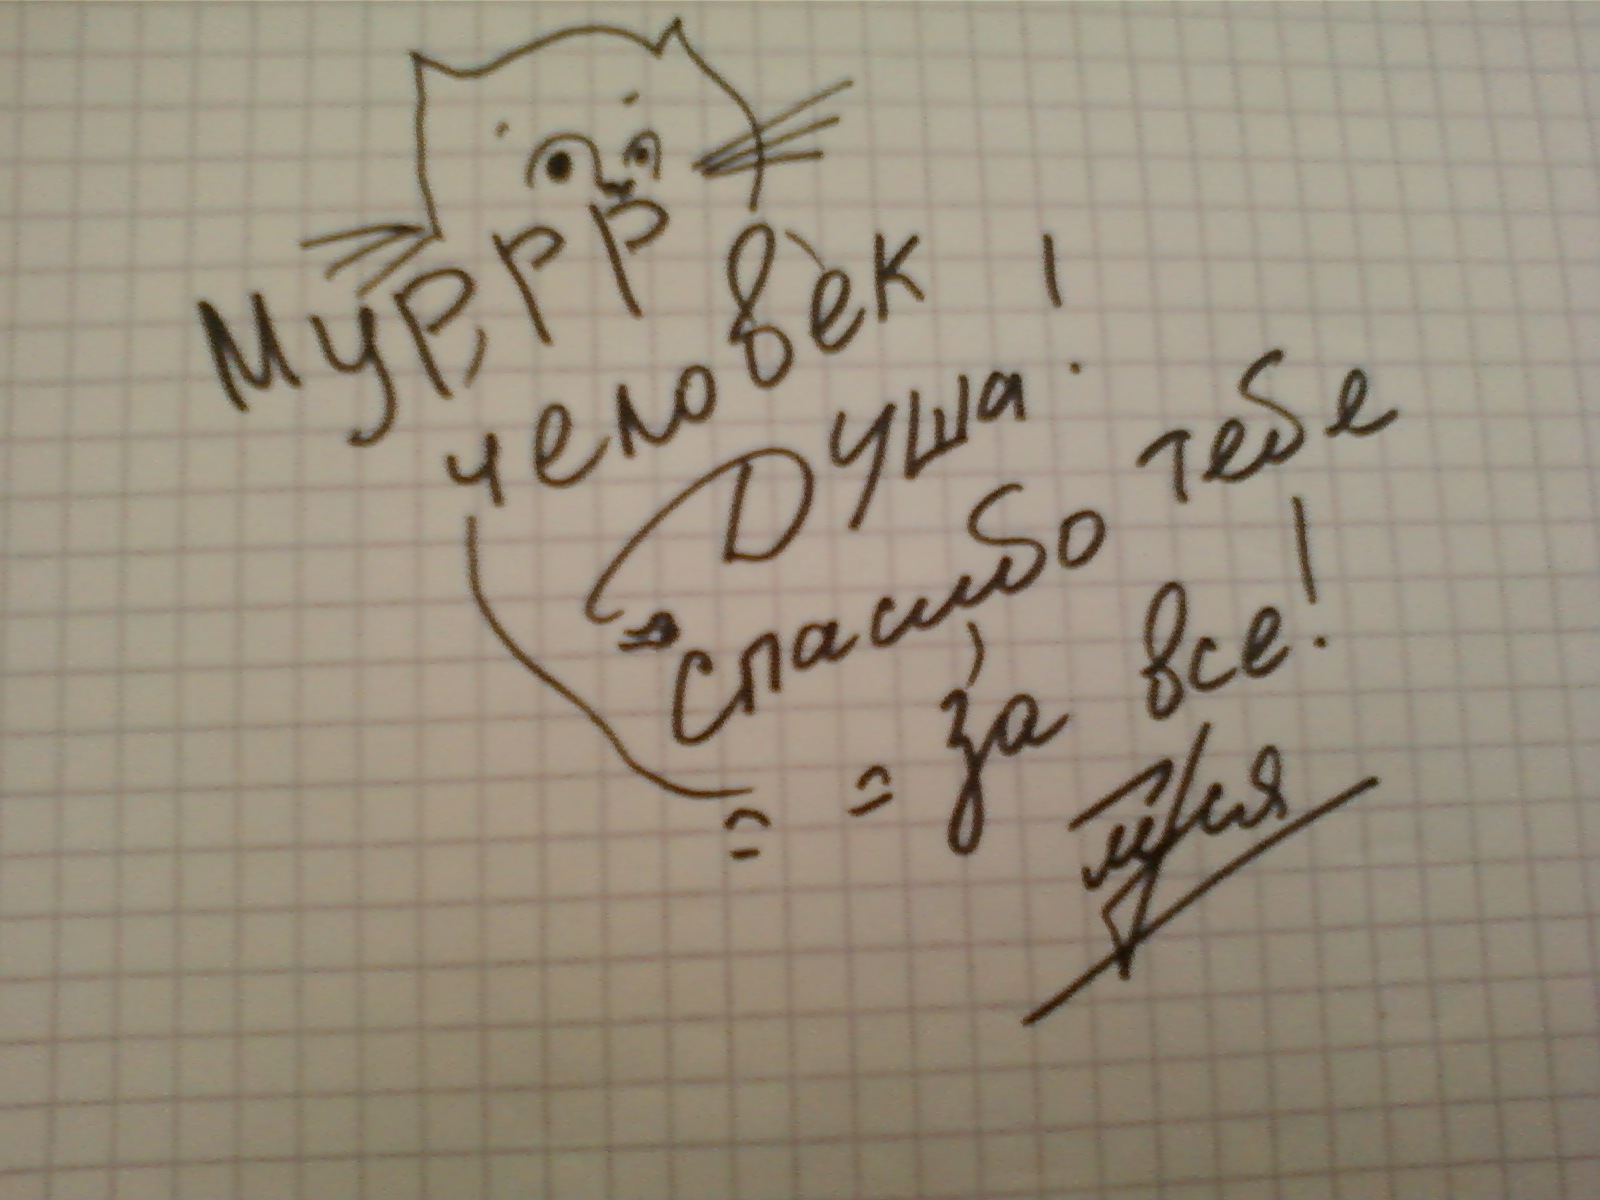 Муррр,
человек
Душа!
спасибо тебе,
за все!